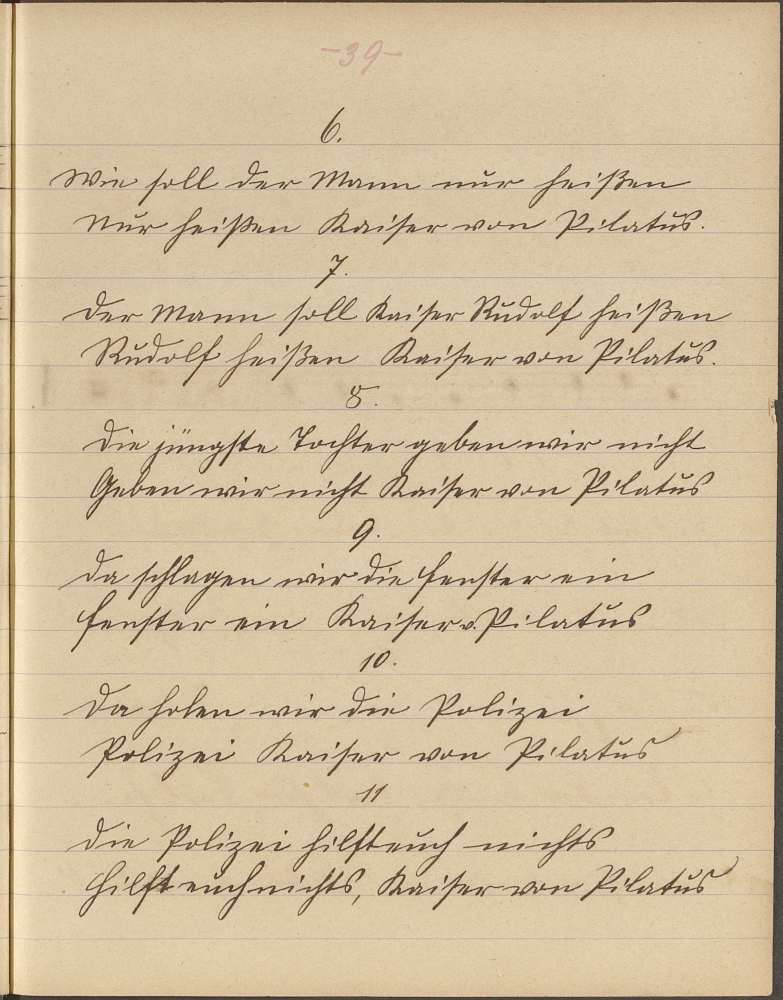 -39-
6.
Wie soll der Mann nur heißen
Nur heißen Kaiser von Pilatus.
7.
Der Mann soll Kaiser Rudolf heißen
Rudolf heißen Kaiser von Pilatus.
8.
Die jüngste Tochter geben wir nicht
Geben wir nicht Kaiser von Pilatus
9.
Da schlagen wir die Fenster ein
Fenster ein Kaiser v. Pilatus
10.
Da holen wir die Polizei
Polizei Kaiser von Pilatus
11
Die Polizei hilft euch nichts
Hilft euch nichts, Kaiser von Pilatus